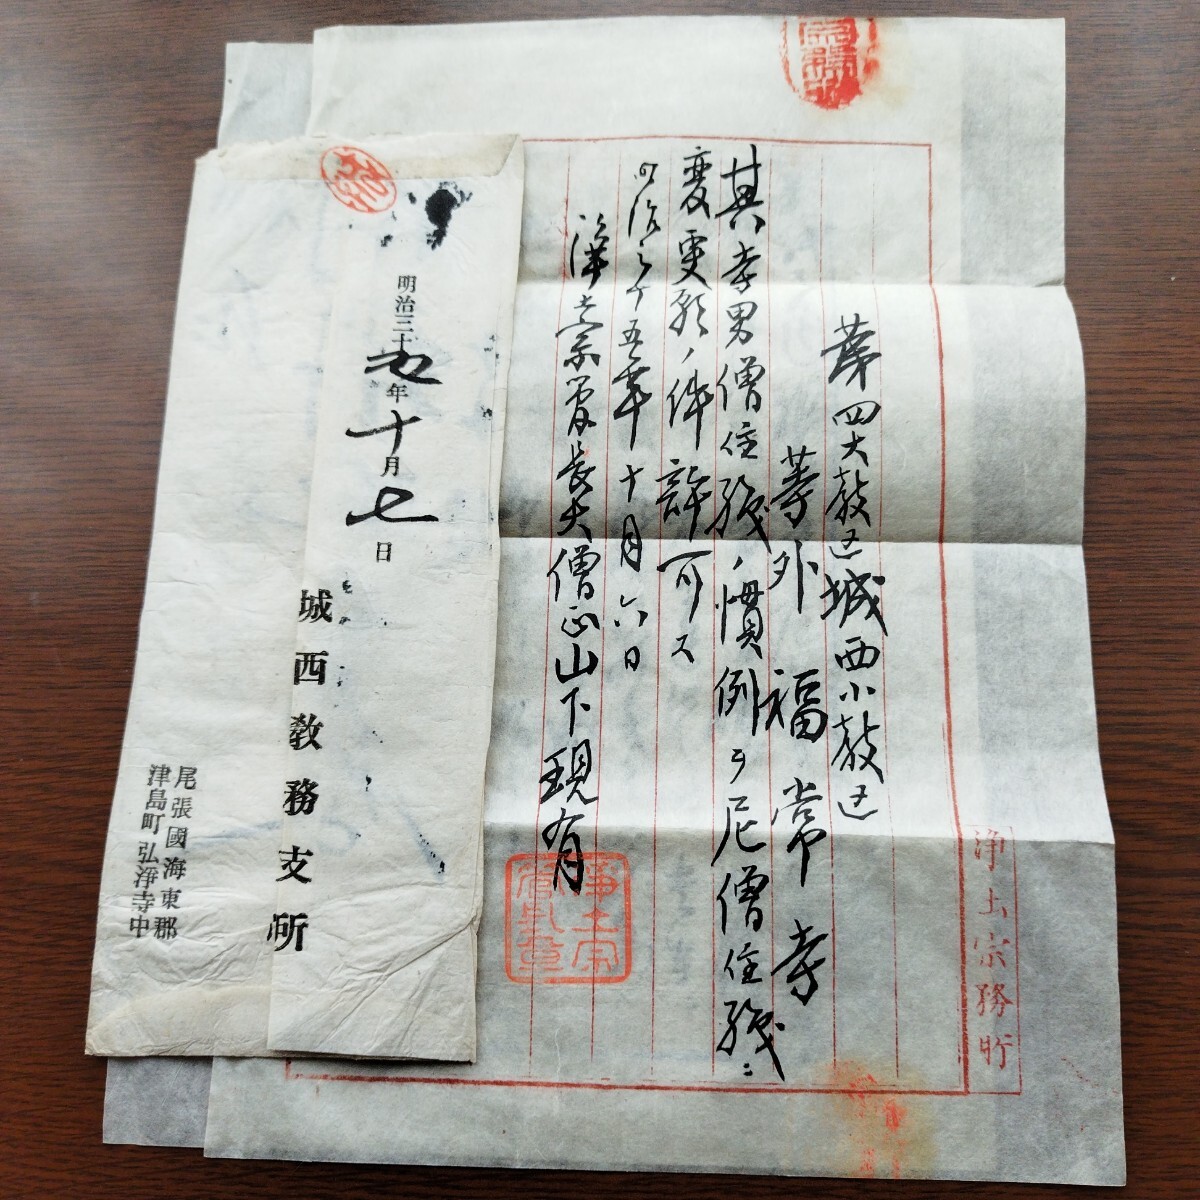 第四大教区城西小教区
等外 福常寺
其寺男僧住職ノ慣例ヲ尼僧住職ニ
変更願ノ件許可ス
明治三十五年十月六日
浄土宗管長大僧正山下現有
浄土宗務所
浄土宗
管長章
明治三十五年十月七日
城西教務支所
尾張國海東郡
津島町弘浄寺中